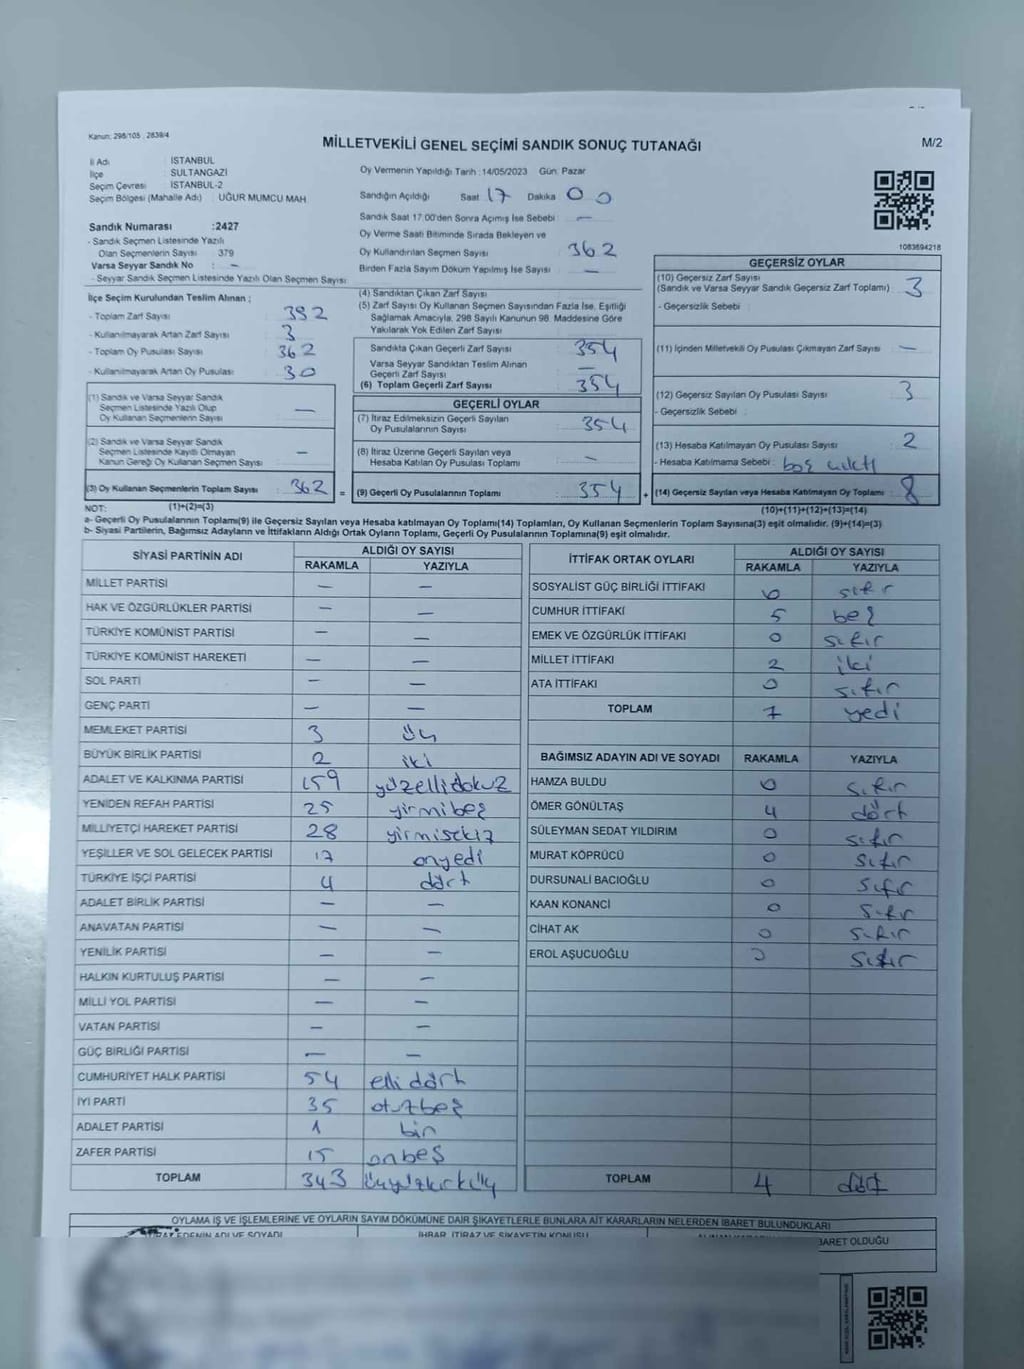 Kanun: 298/105 , 2839/4
MİLLETVEKİLİ GENEL SEÇİMİ SANDIK SONUÇ TUTANAĞI
M/2
İl Adı : İSTANBUL
İlçe : SULTANGAZİ
Seçim Çevresi : İSTANBUL-2
Seçim Bölgesi (Mahalle Adı) : UĞUR MUMCU MAH
Sandık Numarası :2427
- Sandık Seçmen Listesinde Yazılı
Olan Seçmenlerin Sayısı : 379
Varsa Seyyar Sandık No : -
- Seyyar Sandık Seçmen Listesinde Yazılı Olan Seçmen Sayısı:
İlçe Seçim Kurulundan Teslim Alınan ;
- Toplam Zarf Sayısı : 392
- Kullanılmayarak Artan Zarf Sayısı : 3
- Toplam Oy Pusulası Sayısı : 362
- Kullanılmayarak Artan Oy Pusulası : 30
(1) Sandık ve Varsa Seyyar Sandık
Seçmen Listesinde Yazılı Olup
Oy Kullanan Seçmenlerin Sayısı : —
(2) Sandık ve Varsa Seyyar Sandık
Seçmen Listesinde Kayıtlı Olmayan
Kanun Gereği Oy Kullanan Seçmen Sayısı : —
(3) Oy Kullanan Seçmenlerin Toplam Sayısı : 362 =
(1)+(2)=(3)
Oy Vermenin Yapıldığı Tarih : 14/05/2023 Gün: Pazar
Sandığın Açıldığı Saat 17 Dakika 00
Sandık Saat 17.00'den Sonra Açılmış İse Sebebi : —
Oy Verme Saati Bitiminde Sırada Bekleyen ve
Oy Kullandırılan Seçmen Sayısı : 362
Birden Fazla Sayım Döküm Yapılmış İse Sayısı : —
(4) Sandıktan Çıkan Zarf Sayısı :
(5) Zarf Sayısı Oy Kullanan Seçmen Sayısından Fazla İse, Eşitliği
Sağlamak Amacıyla, 298 Sayılı Kanunun 98. Maddesine Göre
Yakılarak Yok Edilen Zarf Sayısı :
Sandıkta Çıkan Geçerli Zarf Sayısı : 354
Varsa Seyyar Sandıktan Teslim Alınan
Geçerli Zarf Sayısı : —
(6) Toplam Geçerli Zarf Sayısı : 354
GEÇERLİ OYLAR
(7) İtiraz Edilmeksizin Geçerli Sayılan
Oy Pusulalarının Sayısı : 354
(8) İtiraz Üzerine Geçerli Sayılan veya
Hesaba Katılan Oy Pusulası Toplamı : —
(9) Geçerli Oy Pusulalarının Toplamı : 354 +
1083694218
GEÇERSİZ OYLAR
(10) Geçersiz Zarf Sayısı : 3
(Sandık ve Varsa Seyyar Sandık Geçersiz Zarf Toplamı)
- Geçersizlik Sebebi :
(11) İçinden Milletvekili Oy Pusulası Çıkmayan Zarf Sayısı : —
(12) Geçersiz Sayılan Oy Pusulası Sayısı : 3
- Geçersizlik Sebebi :
(13) Hesaba Katılmayan Oy Pusulası Sayısı : 2
- Hesaba Katılmama Sebebi : boş çıktı
(14) Geçersiz Sayılan veya Hesaba Katılmayan Oy Toplamı : 8
(10)+(11)+(12)+(13)=(14)
NOT:
a- Geçerli Oy Pusulalarının Toplamı(9) ile Geçersiz Sayılan veya Hesaba katılmayan Oy Toplamı(14) Toplamları, Oy Kullanan Seçmenlerin Toplam Sayısına(3) eşit olmalıdır. (9)+(14)=(3)
b- Siyasi Partilerin, Bağımsız Adayların ve İttifakların Aldığı Ortak Oyların Toplamı, Geçerli Oy Pusulalarının Toplamına(9) eşit olmalıdır.
SİYASİ PARTİNİN ADI ALDIĞI OY SAYISI
RAKAMLA YAZIYLA
MİLLET PARTİSİ — —
HAK VE ÖZGÜRLÜKLER PARTİSİ — —
TÜRKİYE KOMÜNİST PARTİSİ — —
TÜRKİYE KOMÜNİST HAREKETİ — —
SOL PARTİ — —
GENÇ PARTİ — —
MEMLEKET PARTİSİ 3 üç
BÜYÜK BİRLİK PARTİSİ 2 iki
ADALET VE KALKINMA PARTİSİ 159 yüzellidokuz
YENİDEN REFAH PARTİSİ 25 yirmibeş
MİLLİYETÇİ HAREKET PARTİSİ 28 yirmisekiz
YEŞİLLER VE SOL GELECEK PARTİSİ 17 onyedi
TÜRKİYE İŞÇİ PARTİSİ 4 dört
ADALET BİRLİK PARTİSİ — —
ANAVATAN PARTİSİ — —
YENİLİK PARTİSİ — —
HALKIN KURTULUŞ PARTİSİ — —
MİLLİ YOL PARTİSİ — —
VATAN PARTİSİ — —
GÜÇ BİRLİĞİ PARTİSİ — —
CUMHURİYET HALK PARTİSİ 54 elli dört
İYİ PARTİ 35 otuzbeş
ADALET PARTİSİ 1 bir
ZAFER PARTİSİ 15 onbeş
TOPLAM 343 üçyüzkırküç
İTTİFAK ORTAK OYLARI ALDIĞI OY SAYISI
RAKAMLA YAZIYLA
SOSYALİST GÜÇ BİRLİĞİ İTTİFAKI 0 sıfır
CUMHUR İTTİFAKI 5 beş
EMEK VE ÖZGÜRLÜK İTTİFAKI 0 sıfır
MİLLET İTTİFAKI 2 iki
ATA İTTİFAKI 0 sıfır
TOPLAM 7 yedi
BAĞIMSIZ ADAYIN ADI VE SOYADI RAKAMLA YAZIYLA
HAMZA BULDU 0 sıfır
ÖMER GÖNÜLTAŞ 4 dört
SÜLEYMAN SEDAT YILDIRIM 0 sıfır
MURAT KÖPRÜCÜ 0 sıfır
DURSUNALİ BACIOĞLU 0 sıfır
KAAN KONANCİ 0 sıfır
CİHAT AK 0 sıfır
EROL AŞUCUOĞLU 0 sıfır
TOPLAM 4 dört
OYLAMA İŞ VE İŞLEMLERİNE VE OYLARIN SAYIM DÖKÜMÜNE DAİR ŞİKAYETLERLE BUNLARA AİT KARARLARIN NELERDEN İBARET BULUNDUKLARI
İTİRAZ EDENİN ADI VE SOYADI İHBAR, İTİRAZ VE ŞİKAYETİN KONUSU İBARET OLDUĞU